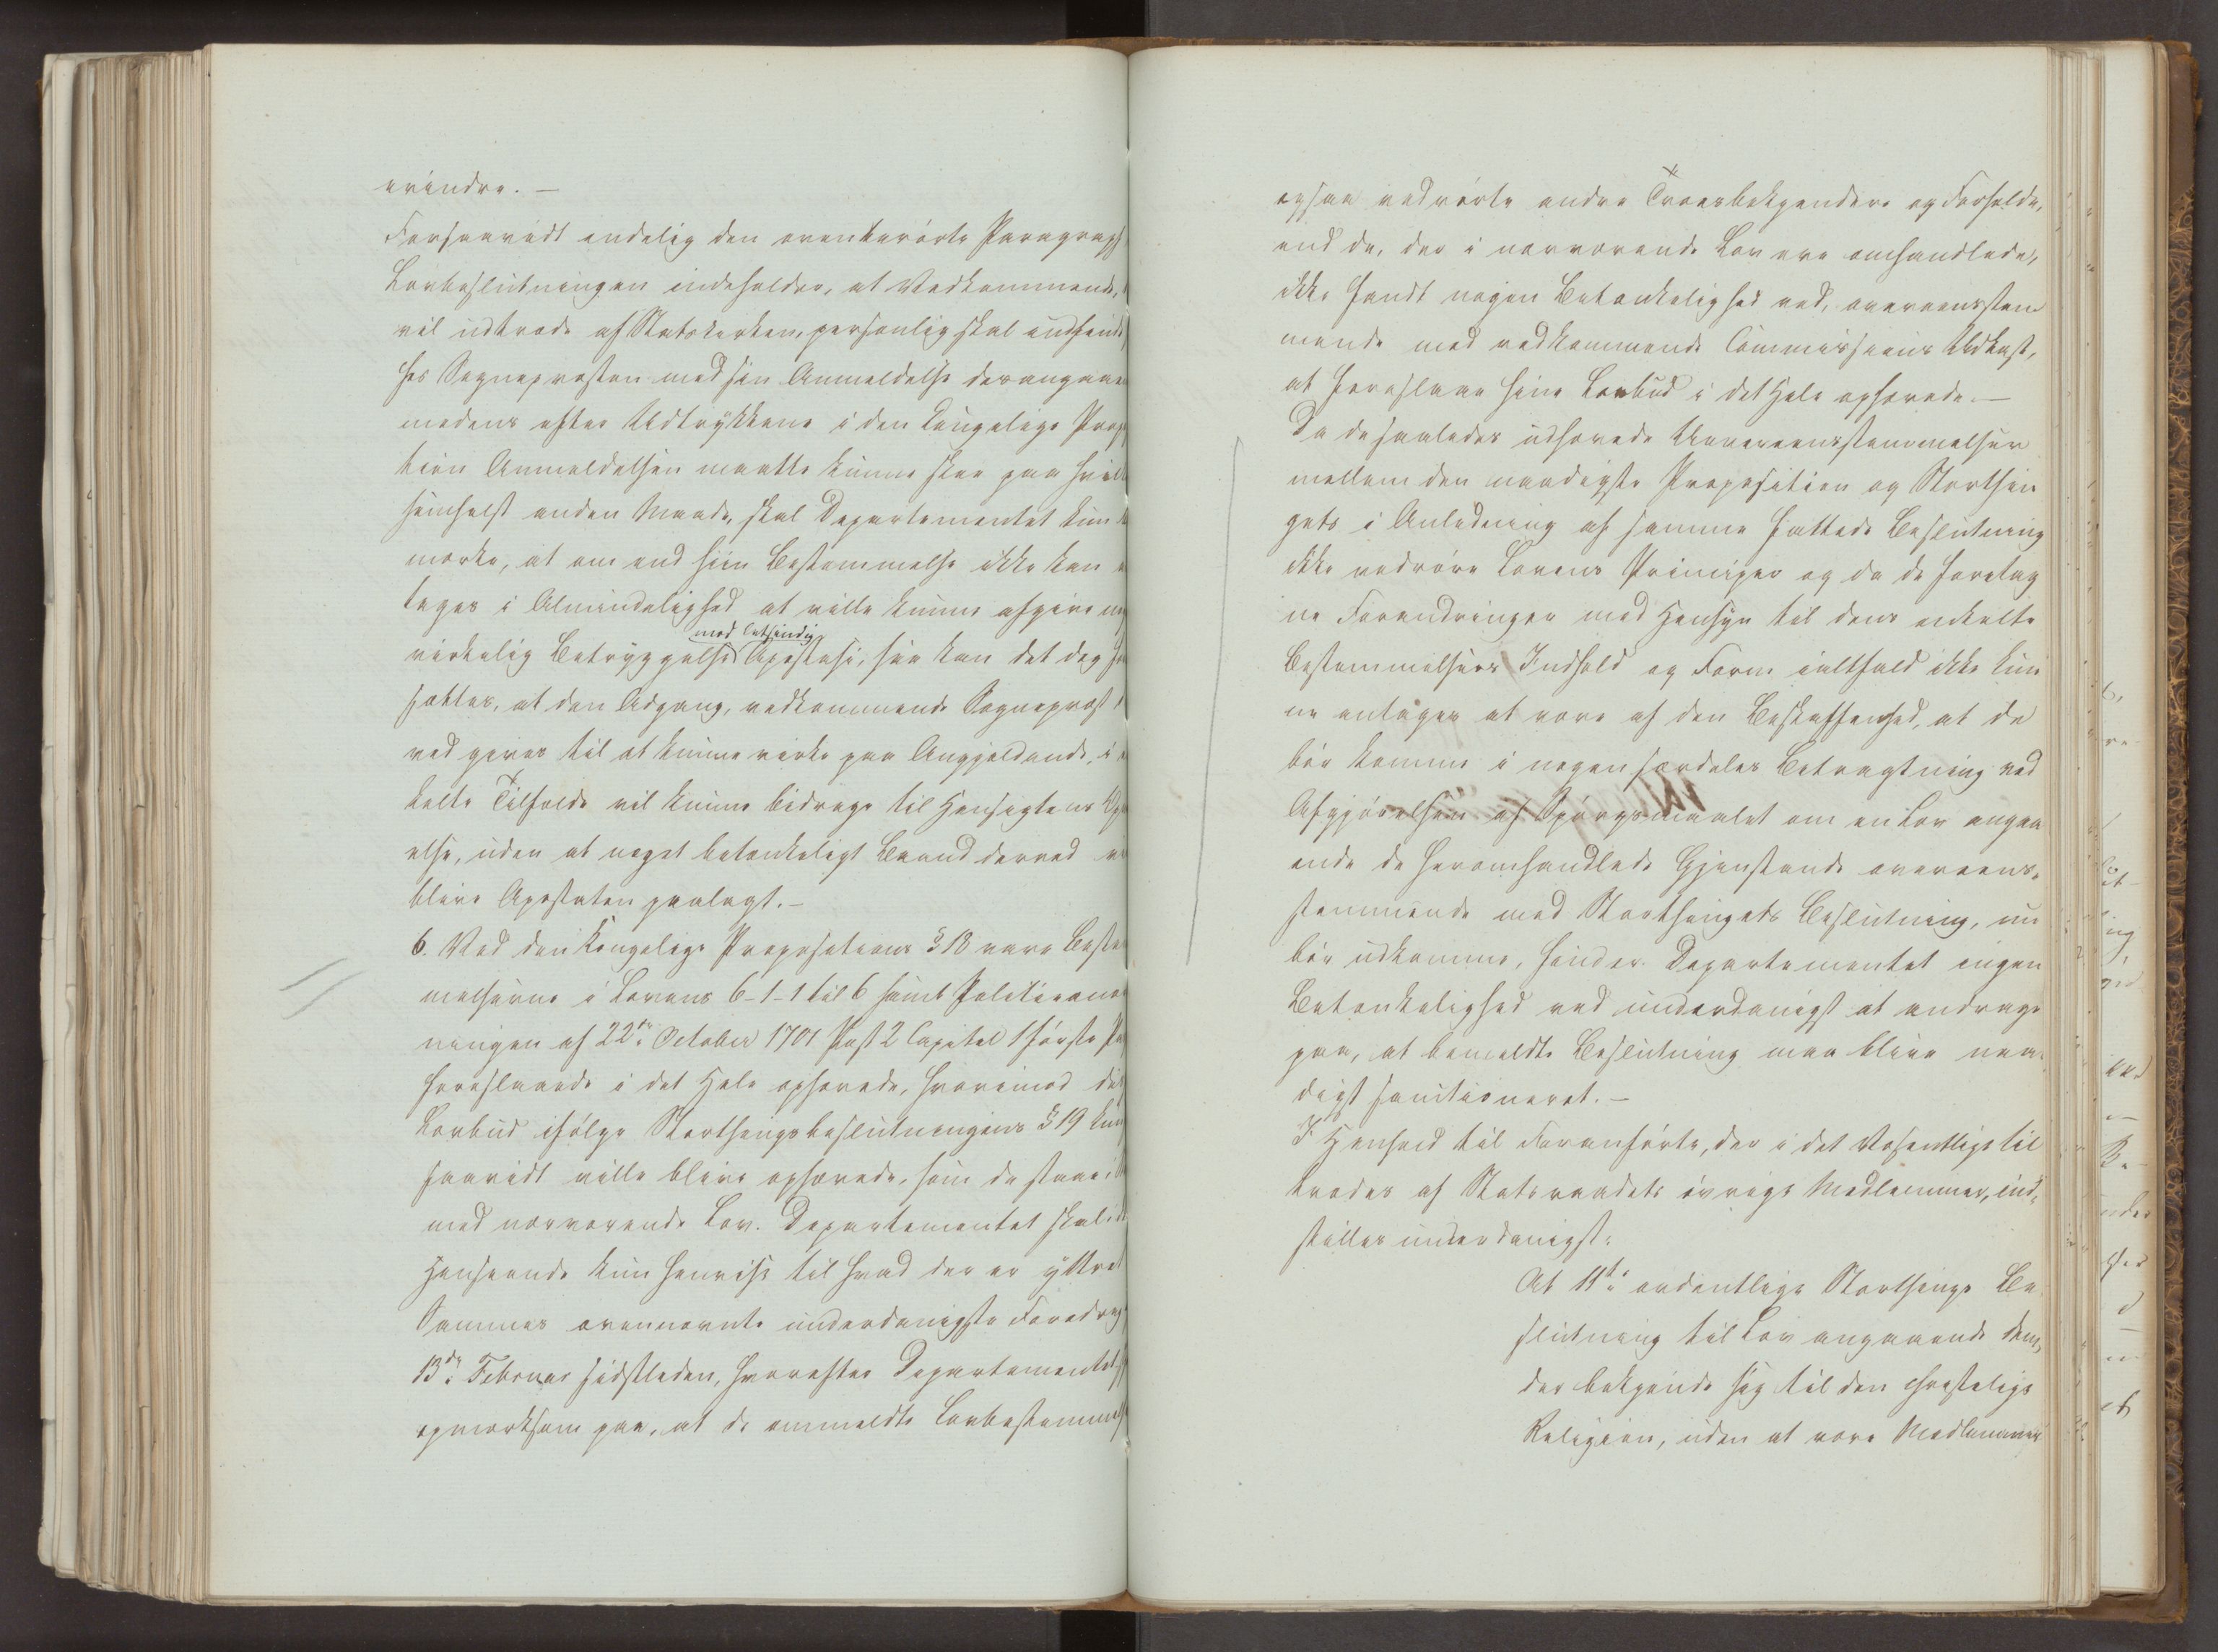 erindre. —
Forsaavidt endelig den ovenberørte Paragraph
Lovbeslutningen indeholder, at Vedkommende,
vil udtræde af Statskirken, personlig skal indfinde
hos Sognepræsten med sin Anmeldelse desangaaen
medens efter Udtrykkene i den kongelige Propo
tion Anmeldelsen maatte kunne skee paa hvil
somhelst anden Maade, skal Departementet kun
mærke, at om end hiin Bestemmelse ikke kan
tages i Almindelighed at ville kunne afgive no
med letsindig
virkelig Betryggelse Apostasi, saa kan det dog
sættes, at den Adgang, vedkommende Sognepræst
ved gives til at kunne virke paa Angjældende, i
kelte Tilfælde vil kunne bidrage til Hensigtens Op
else, uden at noget betænkeligt Baand derved
blive Apostaten paalagt. —
6. Ved den Kongelige Propositions § 18 vare Beste
melserne i Lovens 6-1-1 til 6 samt Politieanor
ningen af 22de October 1701 Post 2 Capitel 1 første
foreslaaede i det Hele ophævede, hvorimod
Lovbud ifølge Storthingsbeslutningens § 19 kun
saavidt ville blive ophævede, som de staae i
med nærværende Lov. Departementet skal
Henseende kun henvise til hvad der er yttret
Sammes ovennævnte underdanigste Foredrag
13de Februar sidstleden, hvorefter Departementet
opmærksom paa, at de ommeldte Lovbestemmel
ogsaa vedrørte andre Troesbekjendere og Forholde,
end de, der i nærværende Lov ere omhandlede,
ikke fandt nogen Betænkelighed ved, overeensstem
mende med vedkommende Commissions Udkast,
at foreslaae hine Lovbud i det Hele ophævede. —
Da de saaledes udhævede Uovereensstemmelser
mellem den naadigste Proposition og Storthin
gets i Anledning af samme fattede Beslutning
ikke vedrøre Lovens Principer og da de foretag
ne Forandringer med Hensyn til dens enkelte
Bestemmelsers Indhold og Form ialtfald ikke kun
ne antages at være af den Beskaffenhed, at de
bør komme i nogen særdeles Betragtning ved
Afgjørelsen af Spørgsmaalet om en Lov angaa
ende de heromhandlede Gjenstande overeens-
stemmende med Storthingets Beslutning, nu
bør udkomme, finder Departementet ingen
Betænkelighed ved underdanigst at andrage
paa, at bemeldte Beslutning maa blive naa-
digst sanctioneret. —
I Henhold til Foranførte, der i det Væsentlige til
trædes af Statsraadets øvrige Medlemmer, ind-
stilles underdanigst:
At 11te ordentlige Storthings Be
slutning til Lov angaaende dem,
der bekjende sig til den christelige
Religion, uden at være Medlemmer